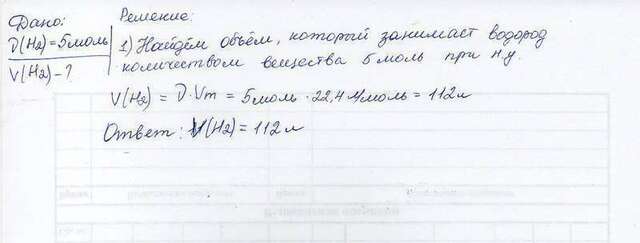 Дано:
Решение:
D(H₂)=5моль
V(H₂)-?
1) Найдём объём, который занимает водород
количеством вещества 5моль при н.у.
V(H₂) = D·Vm = 5моль·22,4л/моль = 112л
Ответ: V(H₂)=112л